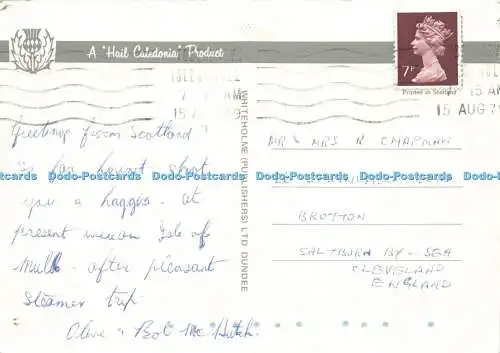 A "Hail Caledonia" Product
7P
Printed in Scotland
15 AM
15 AUG 79
Greetings from Scotland
So far havent shot
you a haggis. at
present were on Isle of
Mull - after pleasant
steamer trip.
Olive & Bob McHutch.
WHITEHOLME (PUBLISHERS) LTD DUNDEE
MR & MRS R CHAPMAN
BROTTON
SALTBURN BY-SEA
CLEVELAND
ENGLAND
Dodo-Postcards Dodo-Postcards Dodo-Postcards Dodo-Postcards Dodo-Postcards